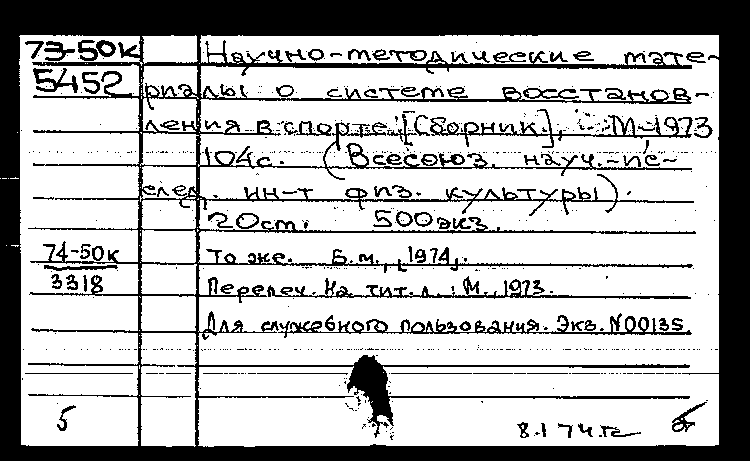 73-50к Научно-методические мате-
5452 риалы о системе восстанов-
ления в спорте. [Сборник], М., 1973
104с. (Всесоюз. науч.-ис-
след. ин-т физ. культуры).
20 ст. 500 экз.
74-50к То же. Б.м., [1974].
3318 Перепеч. На тит. л.: М., 1973.
Для служебного пользования. Экз. N00135.
5 8.1 74 г.